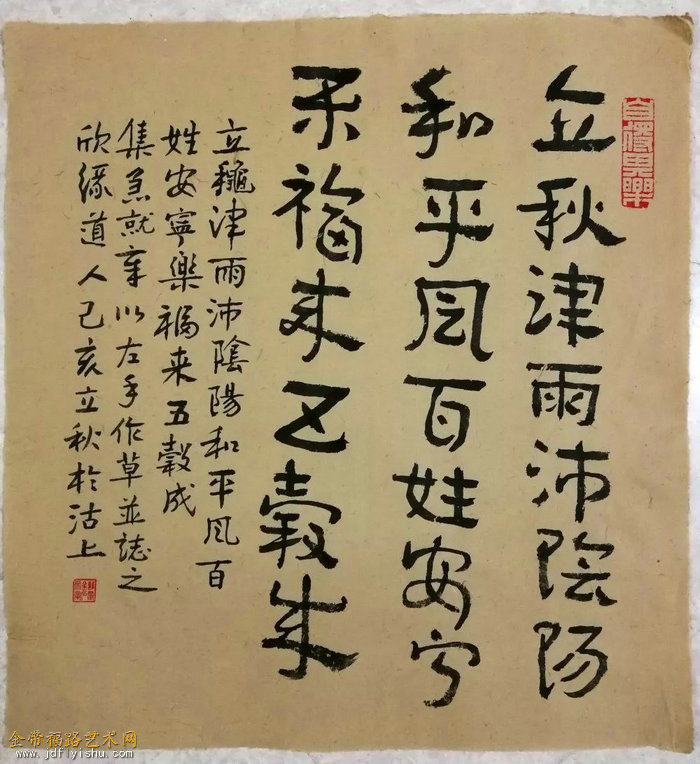 立秋津雨沛陰陽
和平风百姓安宁
乐福来五穀成
立龝津雨沛陰陽和平风百
姓安寧樂福来五穀成
集羔就章以左手作草並誌之
欣缘道人己亥立秋於沽上
金帝福路艺术网
www.jdflyishu.com